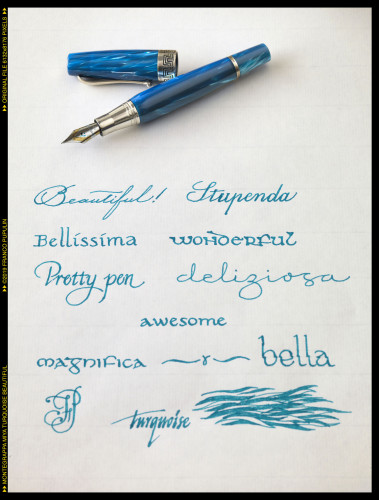 Beautiful! Stupenda
Bellíssíma wonderful
Pretty pen deliziosa
awesome
magnifica ~r~ bella
FP turquoise
MONTEGRAPPA MIYA TURQUOISE BEAUTIFUL
©2018 FRANCO PUPULIN
ORIGINAL FILE 6132x8176 PIXELS